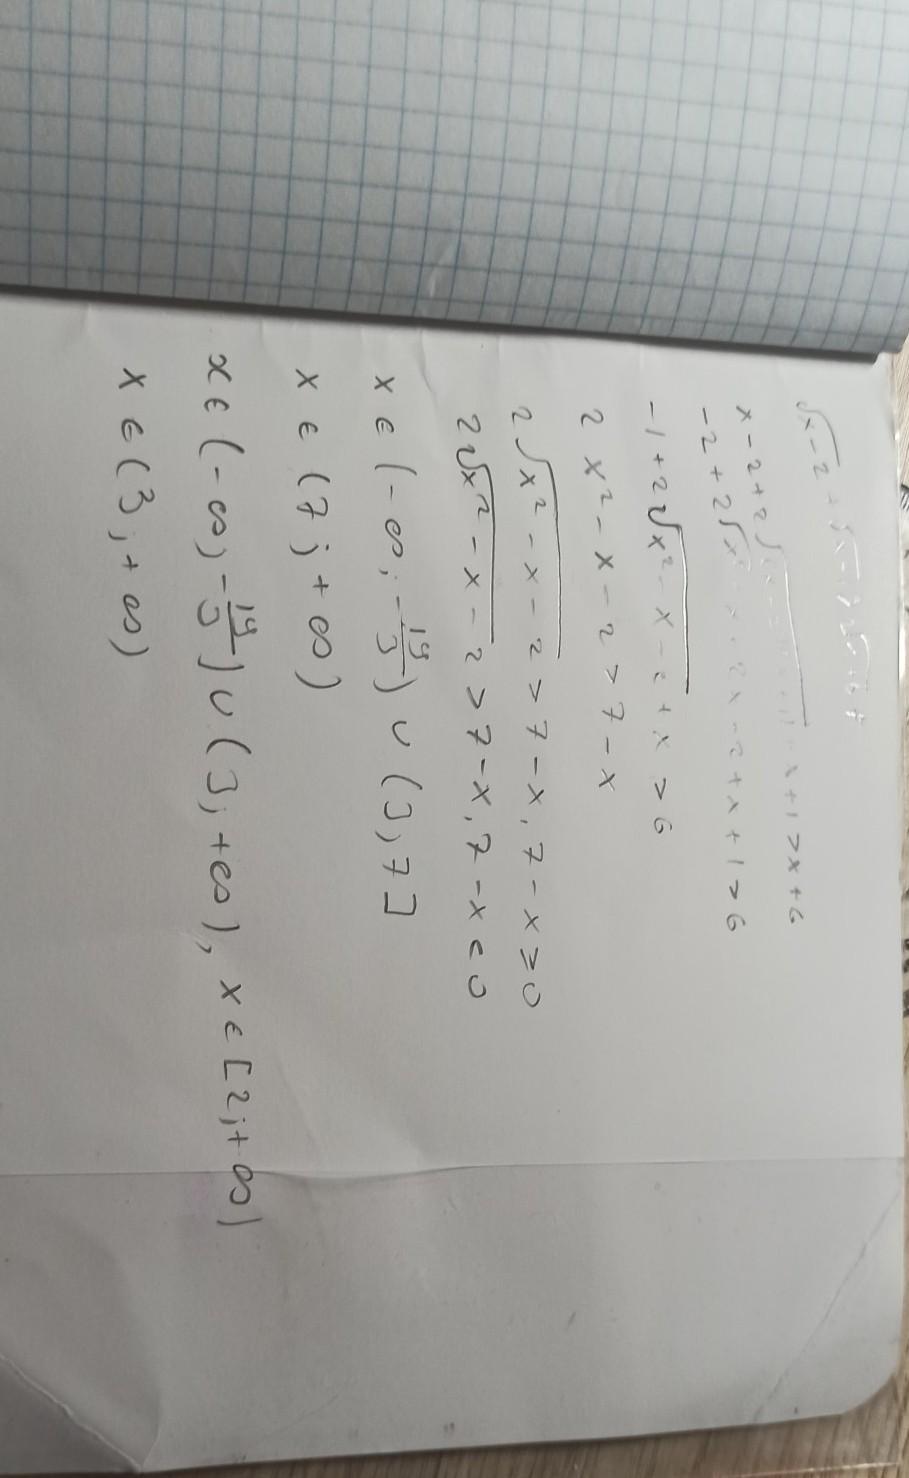 √x-2 + √x+1 > √x+6
x-2+2√(x-2)(x+1) + x+1 > x+6
-2+2√x² + x - 2x - 2 + x + 1 > 6
-1+2√x² - x - 2 + x > 6
2 x² - x - 2 > 7 - x
2√x² - x - 2 > 7 - x, 7 - x ≥ 0
2√x² - x - 2 > 7 - x, 7 - x < 0
x ∈ (-∞; -19/3) ∪ (3, 7]
x ∈ (7; +∞)
x ∈ (-∞, -19/3) ∪ (3; +∞), x ∈ [2; +∞)
x ∈ (3; +∞)